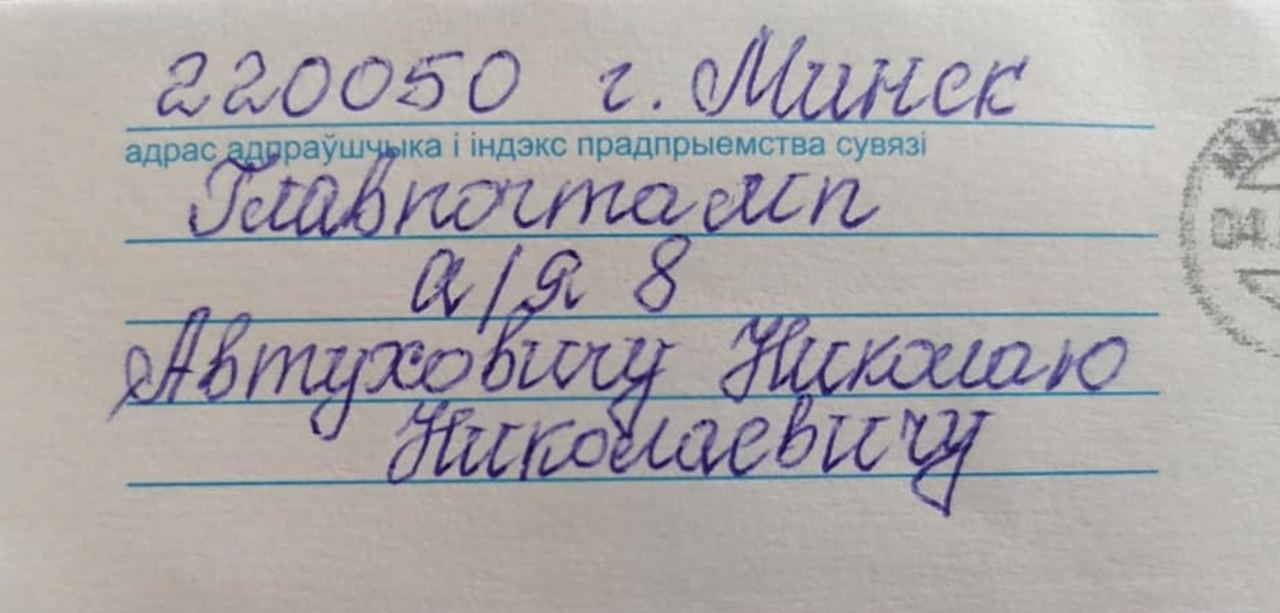 220050 г. Минск
адрас адпраўшчыка і індэкс прадпрыемства сувязі
Главпочтамп
а/я 8
Автуховичу Николаю
Николаевичу